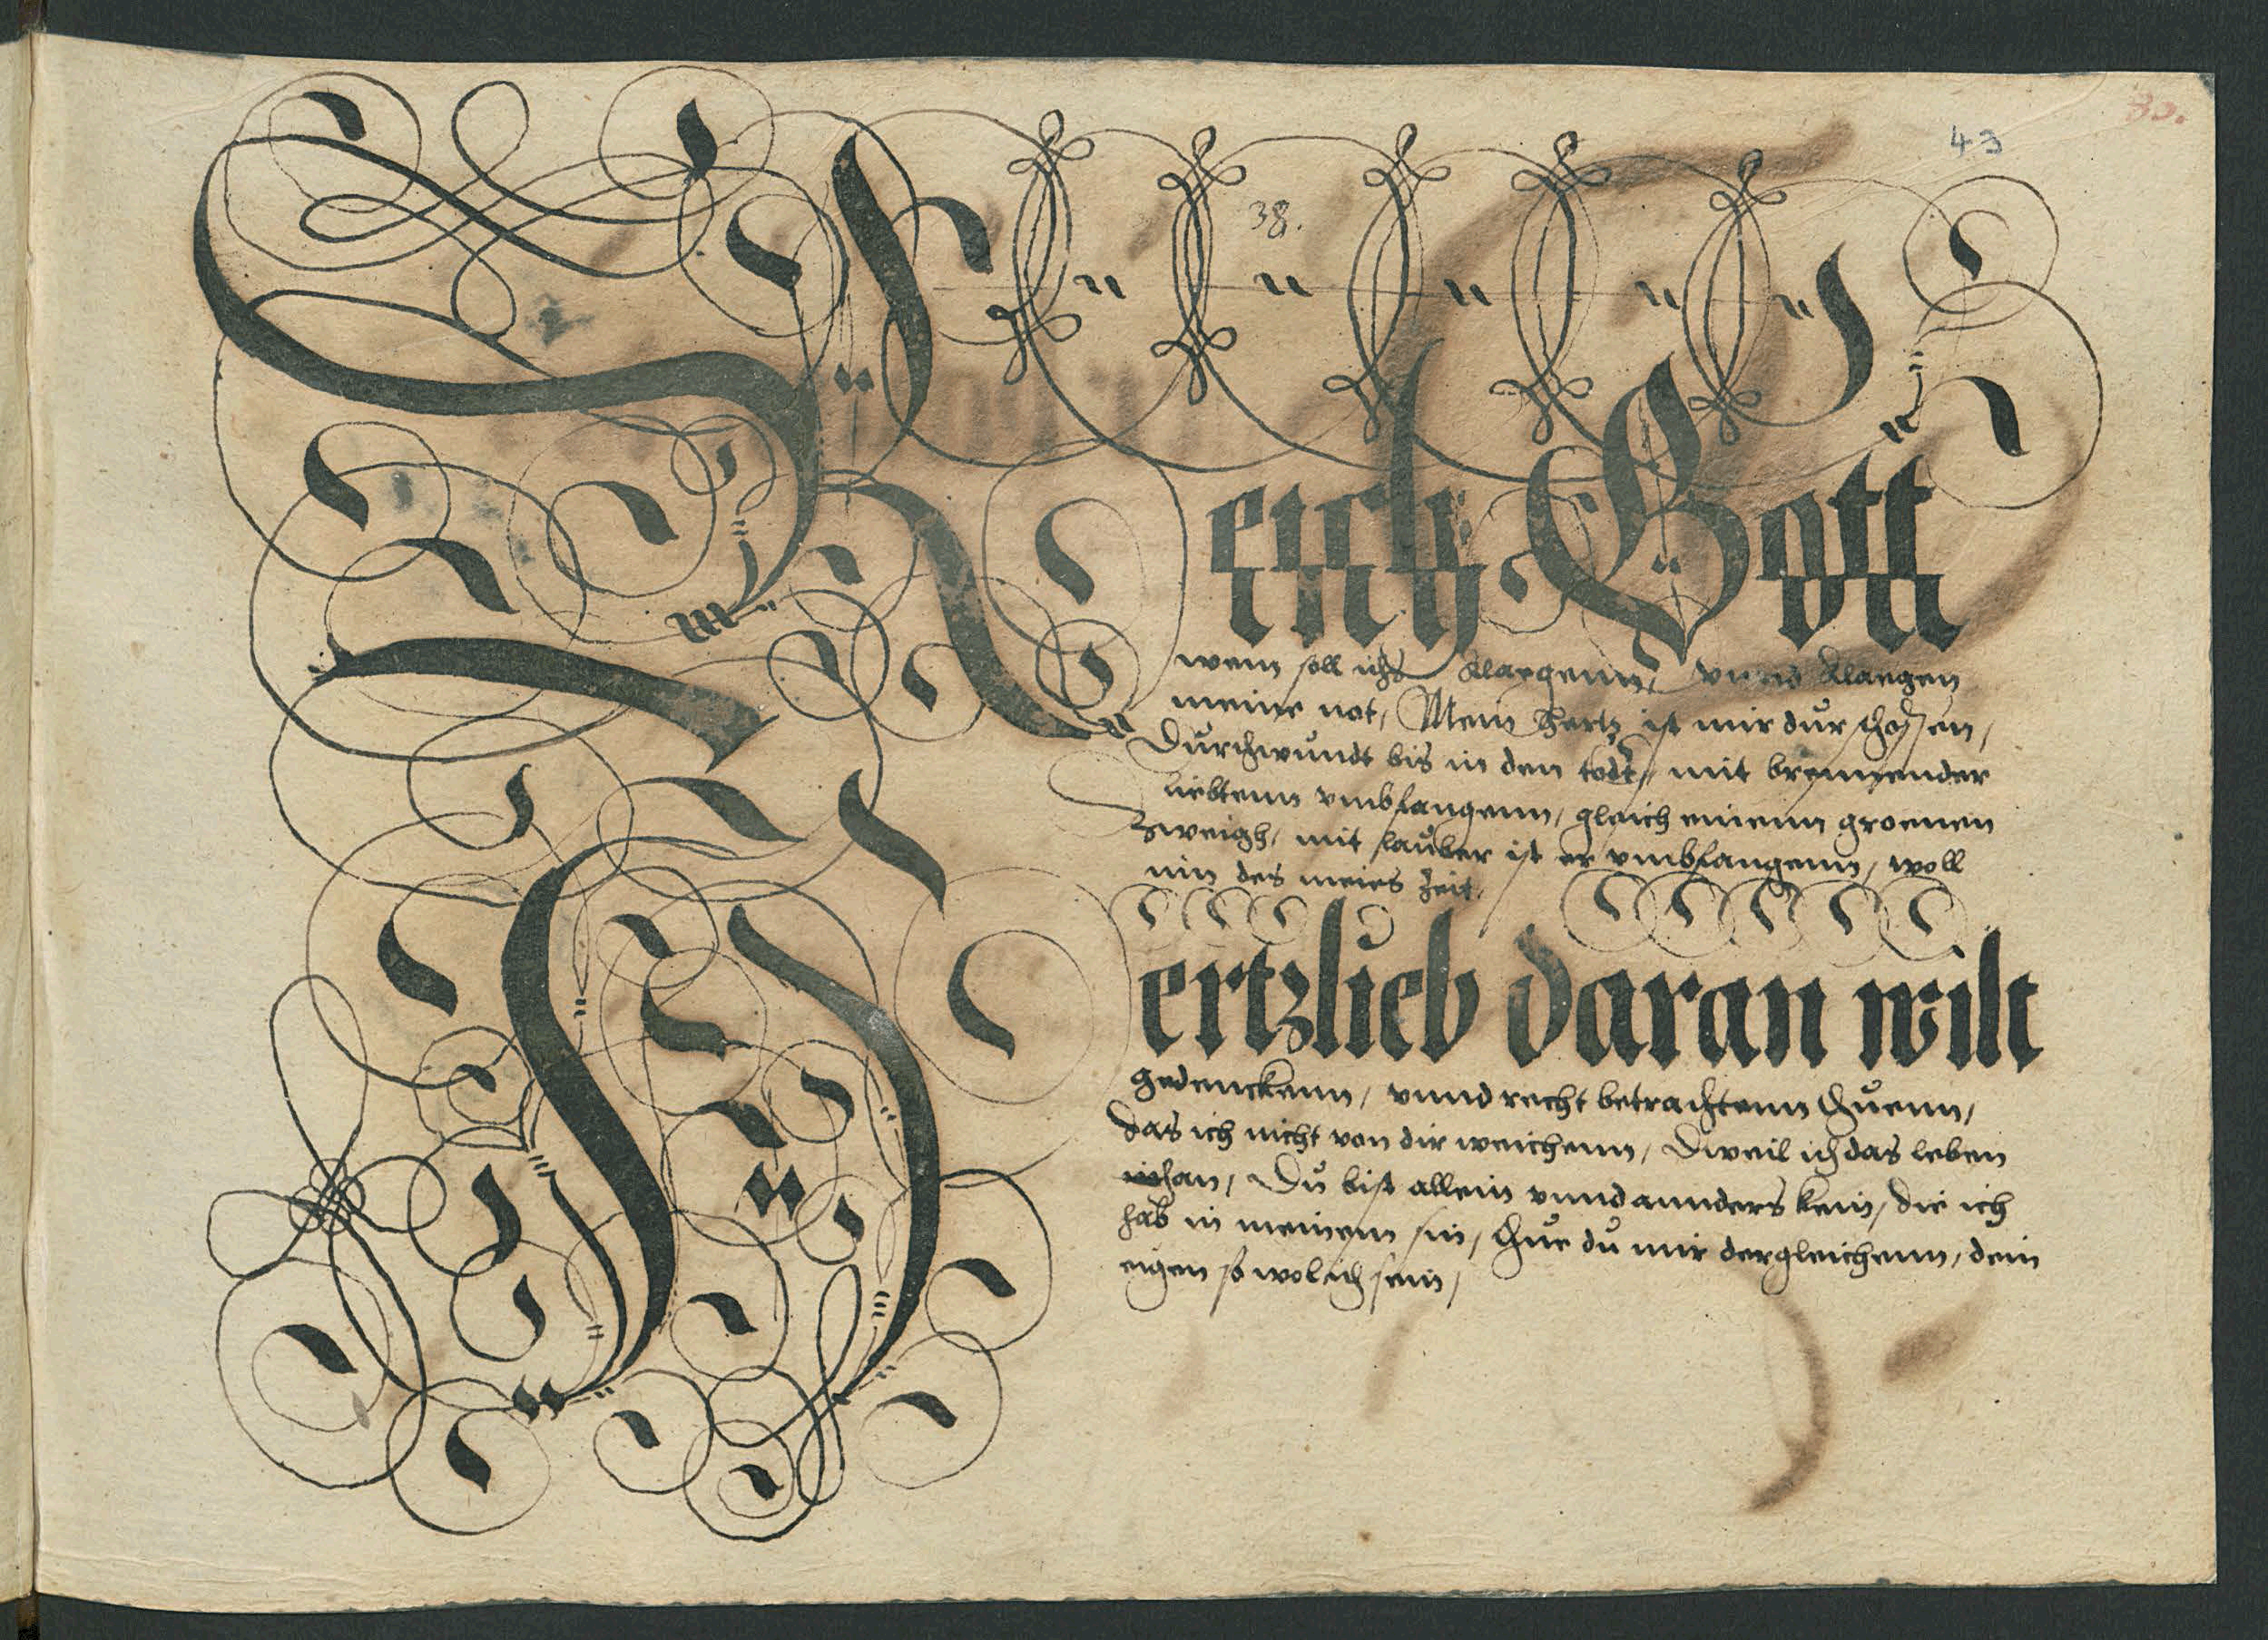 80.
43
38.
Reich Gott
wem soll ichs klaegenn, vnnd klaegen
meine not, Mein hertz ist mir durschossen,
Durchwundt bis in den todt, mit brennender
liebtenn vmbfangenn, gleich einenn groenen
Zweigh, mit lauber ist er vmbfangenn, woll
inn des meies Zeit.
Hertzlieb daran wilt
gedenckenn, vnnd recht betrachtenn thuenn,
das ich nicht von dir weichenn, Dweil ich das leben
han, Du bist allein vnnd annders kein, die ich
hab in meinem sin, thue du mir dergleichenn, dein
eigen so wol ich sein,